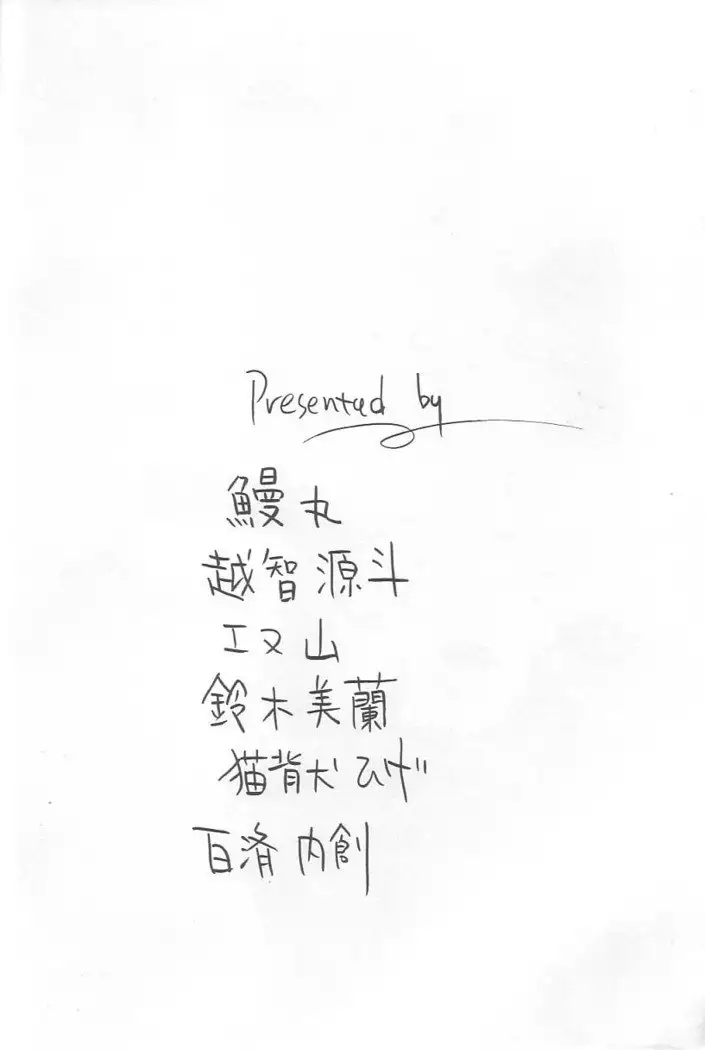 Presented by
鰻丸
越智源斗
工又山
鈴木美蘭
猫背犬ひげ
百済内創